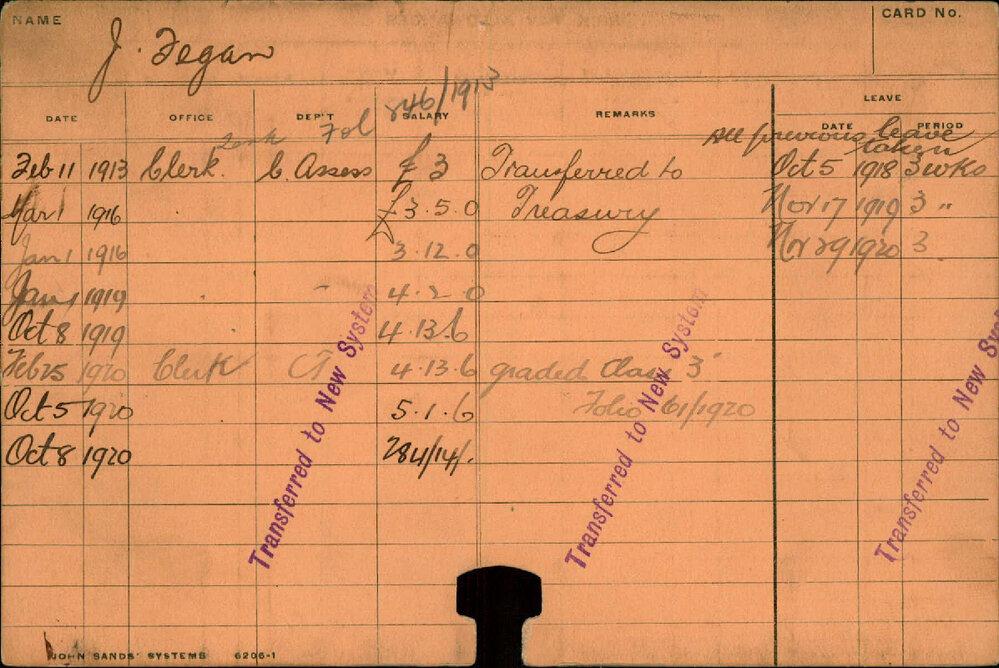 NAME
CARD No.
J. Fegan
846/1913
LEAVE
DATE OFFICE DEP'T SALARY REMARKS DATE PERIOD
Fol
All previous leave
taken
Feb 11 1913 Clerk. C. Assess £3 Transferred to Oct 5 1918 3 wks
Mar 1 1916 £3.5.0 Treasury Nov 17 1919 3 "
Jan 1 1916 3.12.0 Nov 29 1920 3
Jan 1 1919 4.2.0
Oct 8 1919 4.13.6
Feb 25 1920 Clerk CT 4.13.6 graded Class 3
Oct 5 1920 5.1.6 Folio 61/1920
Oct 8 1920 284/14/.
Transferred to New System
Transferred to New System
Transferred to New Sys
JOHN SANDS' SYSTEMS 6206-1